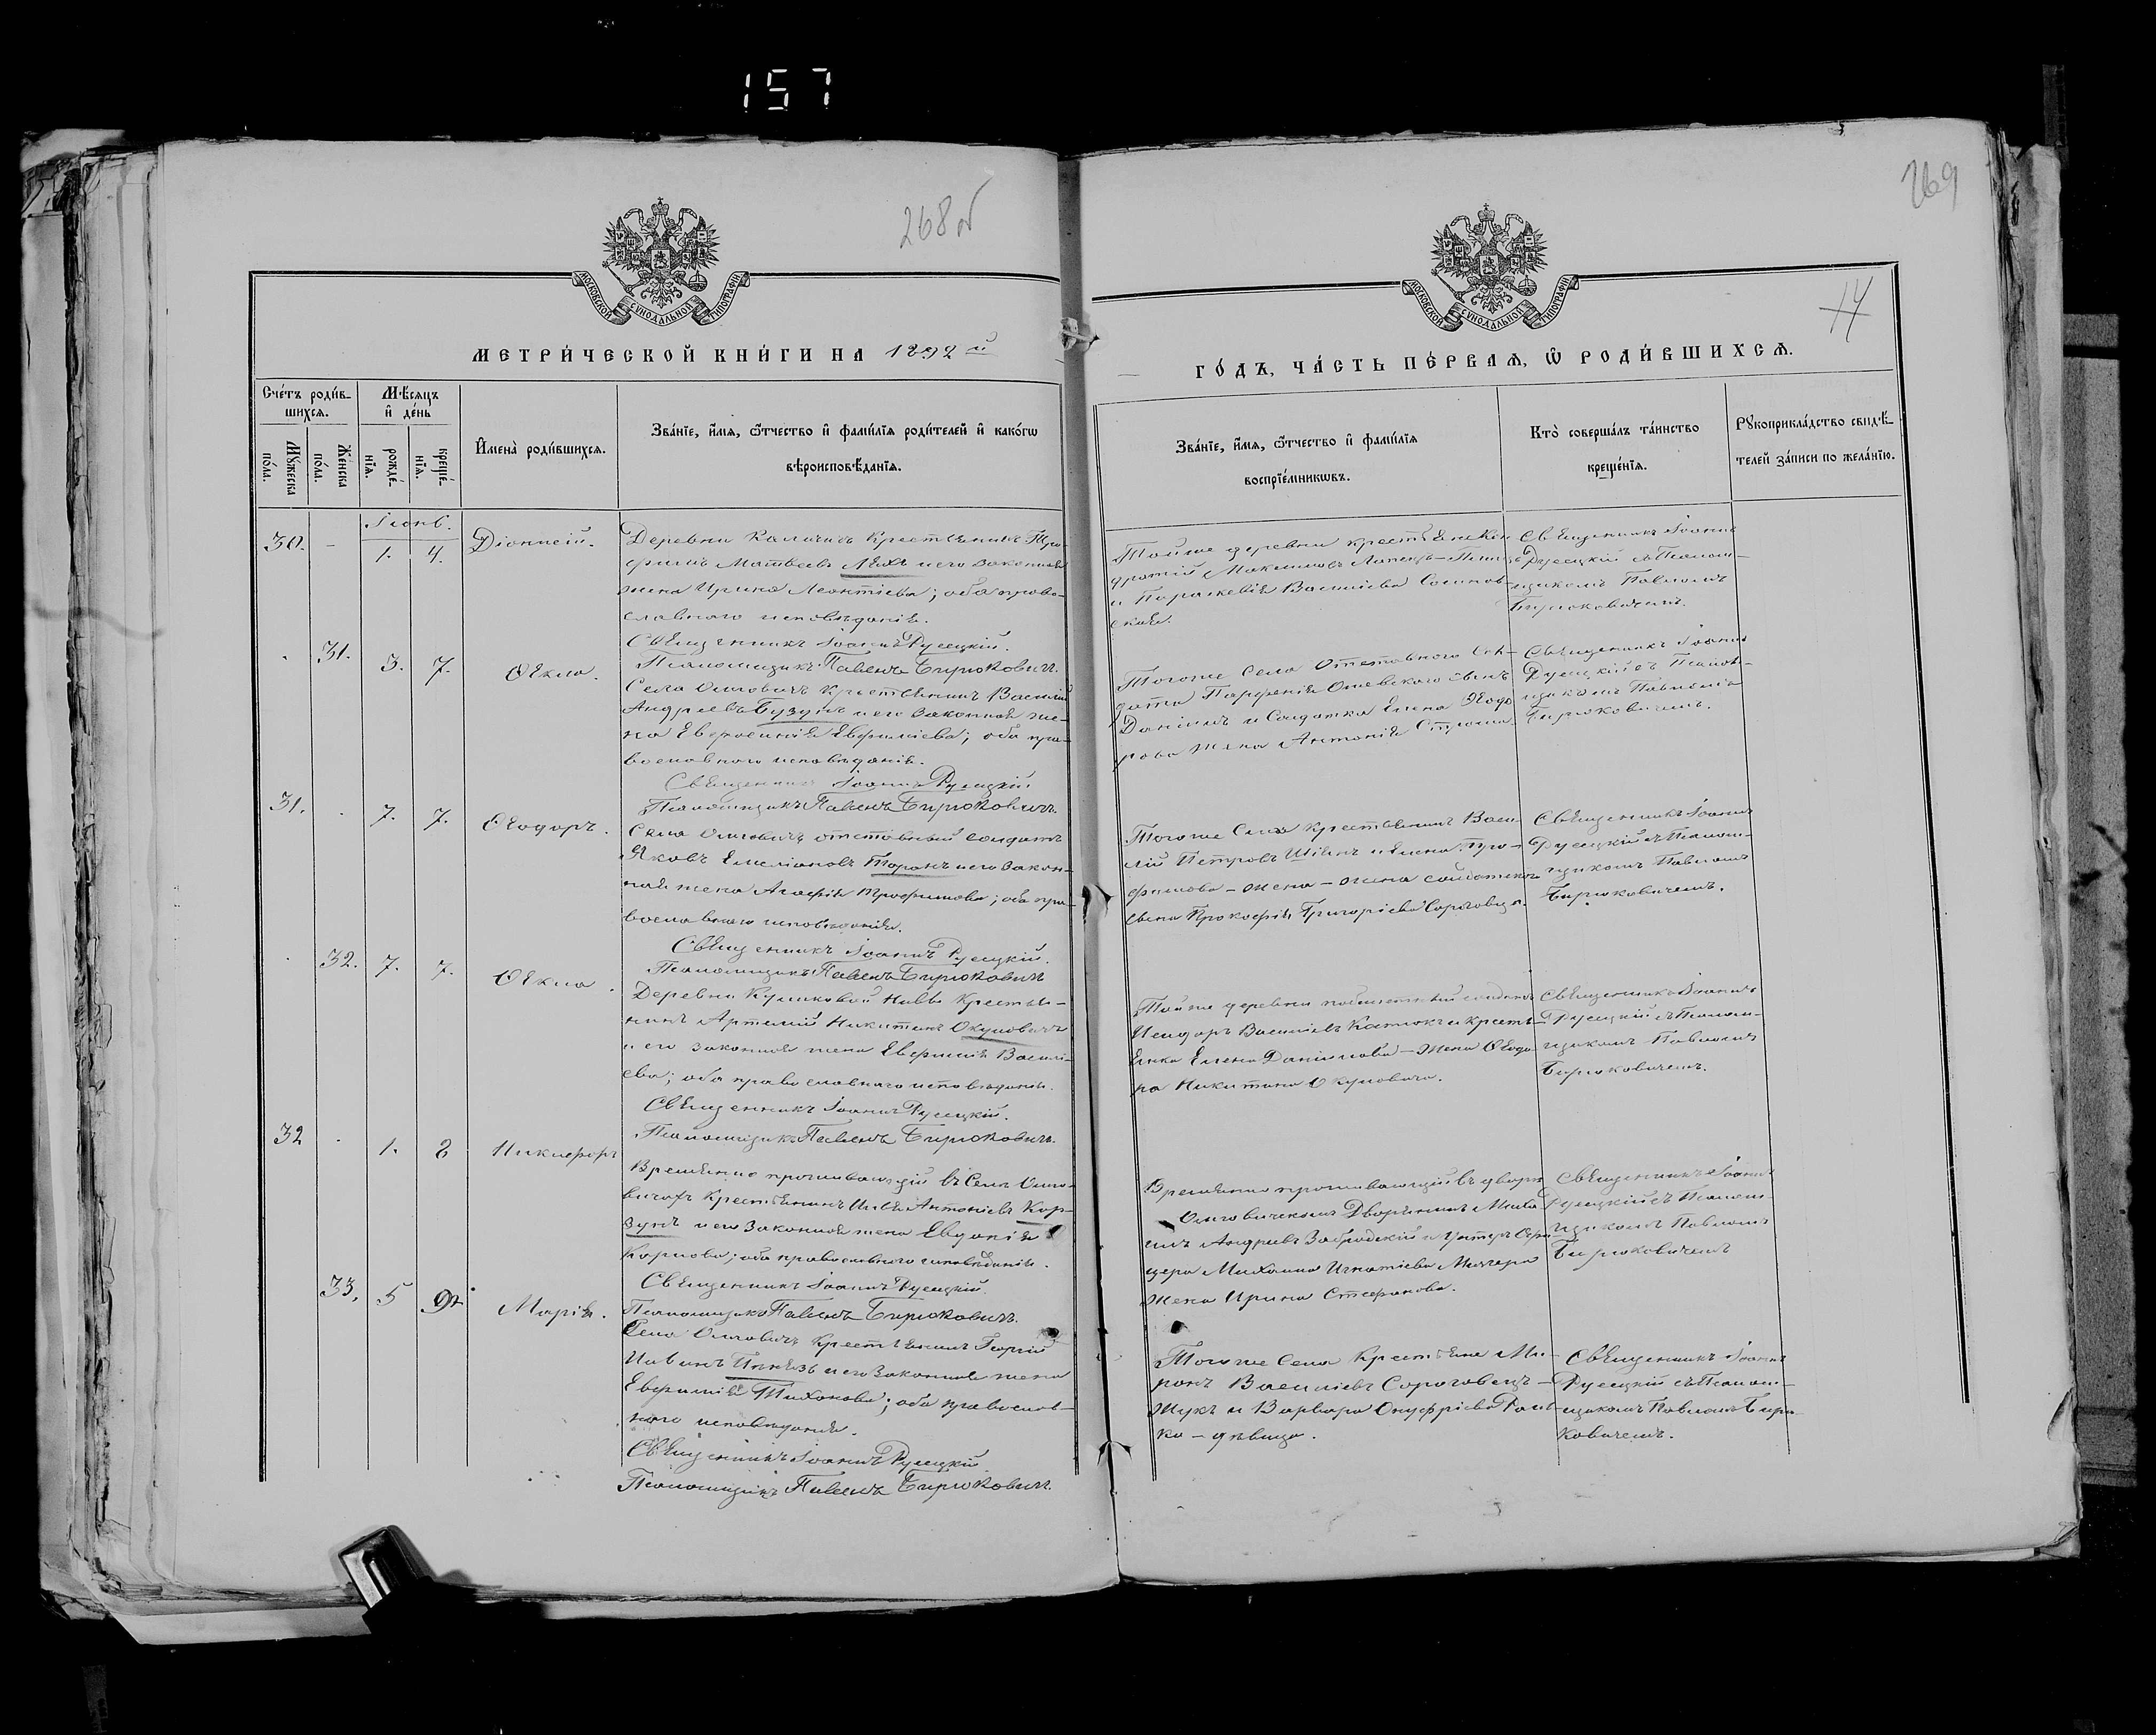 157
268 об
269
14
МОСКОВСКОЙ СУНОДАЛЬНОЙ ТИПОГРАФІИ
МЕТРИ́ЧЕСКОЙ КНИ́ГИ НА 1892 й
Сче́тъ роди́в-
шихсѧ.
Мѣ́сѧцъ
и҆ де́нь
Мꙋ́жеска
по́ла.
Же́нска
по́ла.
рожде́-
нїѧ.
креще́-
нїѧ.
И҆мена̀ роди́вшихсѧ.
Зва́нїе, и҆́мѧ, ѻ҆́тчество и҆ фами́лїѧ роди́телей и҆ како́гѡ
вѣроисповѣ́данїѧ.
Іюнь.
30. - 1. 4. Діонисій.
Деревни Каличичъ крестьянинъ Тро-
фимъ Матвеевъ Ляхъ и его законная
жена Ирина Леонтіева; оба право-
славнаго исповѣданія.
Священникъ Іоаннъ Русецкій.
Псаломщикъ Павелъ Бирюковичъ.
31. 3. 7. Ѳекла.
Села Ольговичъ крестьянинъ Василій
Андреевъ Бузунъ и его законная же-
на Евфросинія Евфиміева; оба пра-
вославнаго исповѣданія.
Священникъ Іоаннъ Русецкій
Псаломщикъ Павелъ Бирюковичъ.
31. 7. 7. Ѳеодоръ.
Села Ольговичъ отставный солдатъ
Яковъ Емеліановъ Таранъ и его закон-
ная жена Агафія Трофимова; оба пра-
вославнаго исповѣданія.
Священникъ Іоаннъ Русецкій.
Псаломщикъ Павелъ Бирюковичъ
32. 7. 7. Ѳекла.
Деревни Куликовой Нивы крестья-
нинъ Артемій Никитинъ Окуловичъ
и его законная жена Евфимія Василі-
ева; оба православнаго исповѣданія.
Священникъ Іоаннъ Русецкій.
Псаломщикъ Павелъ Бирюковичъ.
32 1. 8 Никифоръ
Временно проживающій въ Селѣ Ольго-
вичахъ крестьянинъ Илья Антоніевъ Кор-
зунъ и его законная жена Евдокія
Карпова; оба православнаго исповѣданія.
Священникъ Іоаннъ Русецкій.
Псаломщикъ Павелъ Бирюковичъ.
33. 5 9. Марія.
Села Ольговичъ крестьянинъ Георгій
и его законная жена
Евфимія Тихонова; оба православ-
наго исповѣданія.
Священникъ Іоаннъ Русецкій
Псаломщикъ Павелъ Бирюковичъ.
ГО́ДЪ, ЧА́СТЬ ПЕ́РВАѦ, Ѡ҆ РОДИ́ВШИХСѦ.
Зва́нїе, и҆́мѧ, ѻ҆́тчество и҆ фами́лїѧ
воспрїе́мникѡвъ.
Кто̀ соверша́лъ та́инство
креще́нїѧ.
Рꙋкоприкла́дство свидѣ́-
телей за́писи по жела́нїю.
Тойже деревни крестьяне Кон-
дратій Максимовъ
и Параскевія Василіева
Священникъ Іоаннъ
Русецкій съ Псалом-
щикомъ Павломъ
Бирюковичемъ.
Тогоже Села Отставнаго сол-
дата Парфенія сынъ
Даніилъ и Солдатка Елена Ѳеодо-
рова жена Антонія
Священникъ Іоаннъ
Русецкій съ Псалом-
щикомъ Павломъ
Бирюковичемъ.
Тогоже Села крестьянинъ Васи-
лій Петровъ и Елена Тро-
фимова - жена - жена солдатскаго
сына Прокофія Григоріева
Священникъ Іоаннъ
Русецкій съ Псалом-
щикомъ Павломъ
Бирюковичемъ.
Тойже деревни солдатъ
Исидоръ Василіевъ и крестья-
нка Елена Даніилова - жена Ѳеодо-
ра Никитина Окуловича.
Священникъ Іоаннъ
Русецкій съ Псалом-
щикомъ Павломъ
Бирюковичемъ.
Временно проживающій въ дворѣ
Ольговическомъ Дворянинъ Миха-
илъ Андреевъ Забродскій и Унтеръ Офи-
цера Михаила Игнатіева
жена Ирина Стефанова.
Священникъ Іоаннъ
Русецкій съ Псалом-
щикомъ Павломъ
Бирюковичемъ
Тогоже Села Крестьяне Ми-
ронъ Василіевъ Сороговецъ -
Жукъ и Варвара Онуфріева
ко - дѣвица.
Священникъ Іоаннъ
Русецкій съ Псалом-
щикомъ Павломъ Бирю-
ковичемъ.